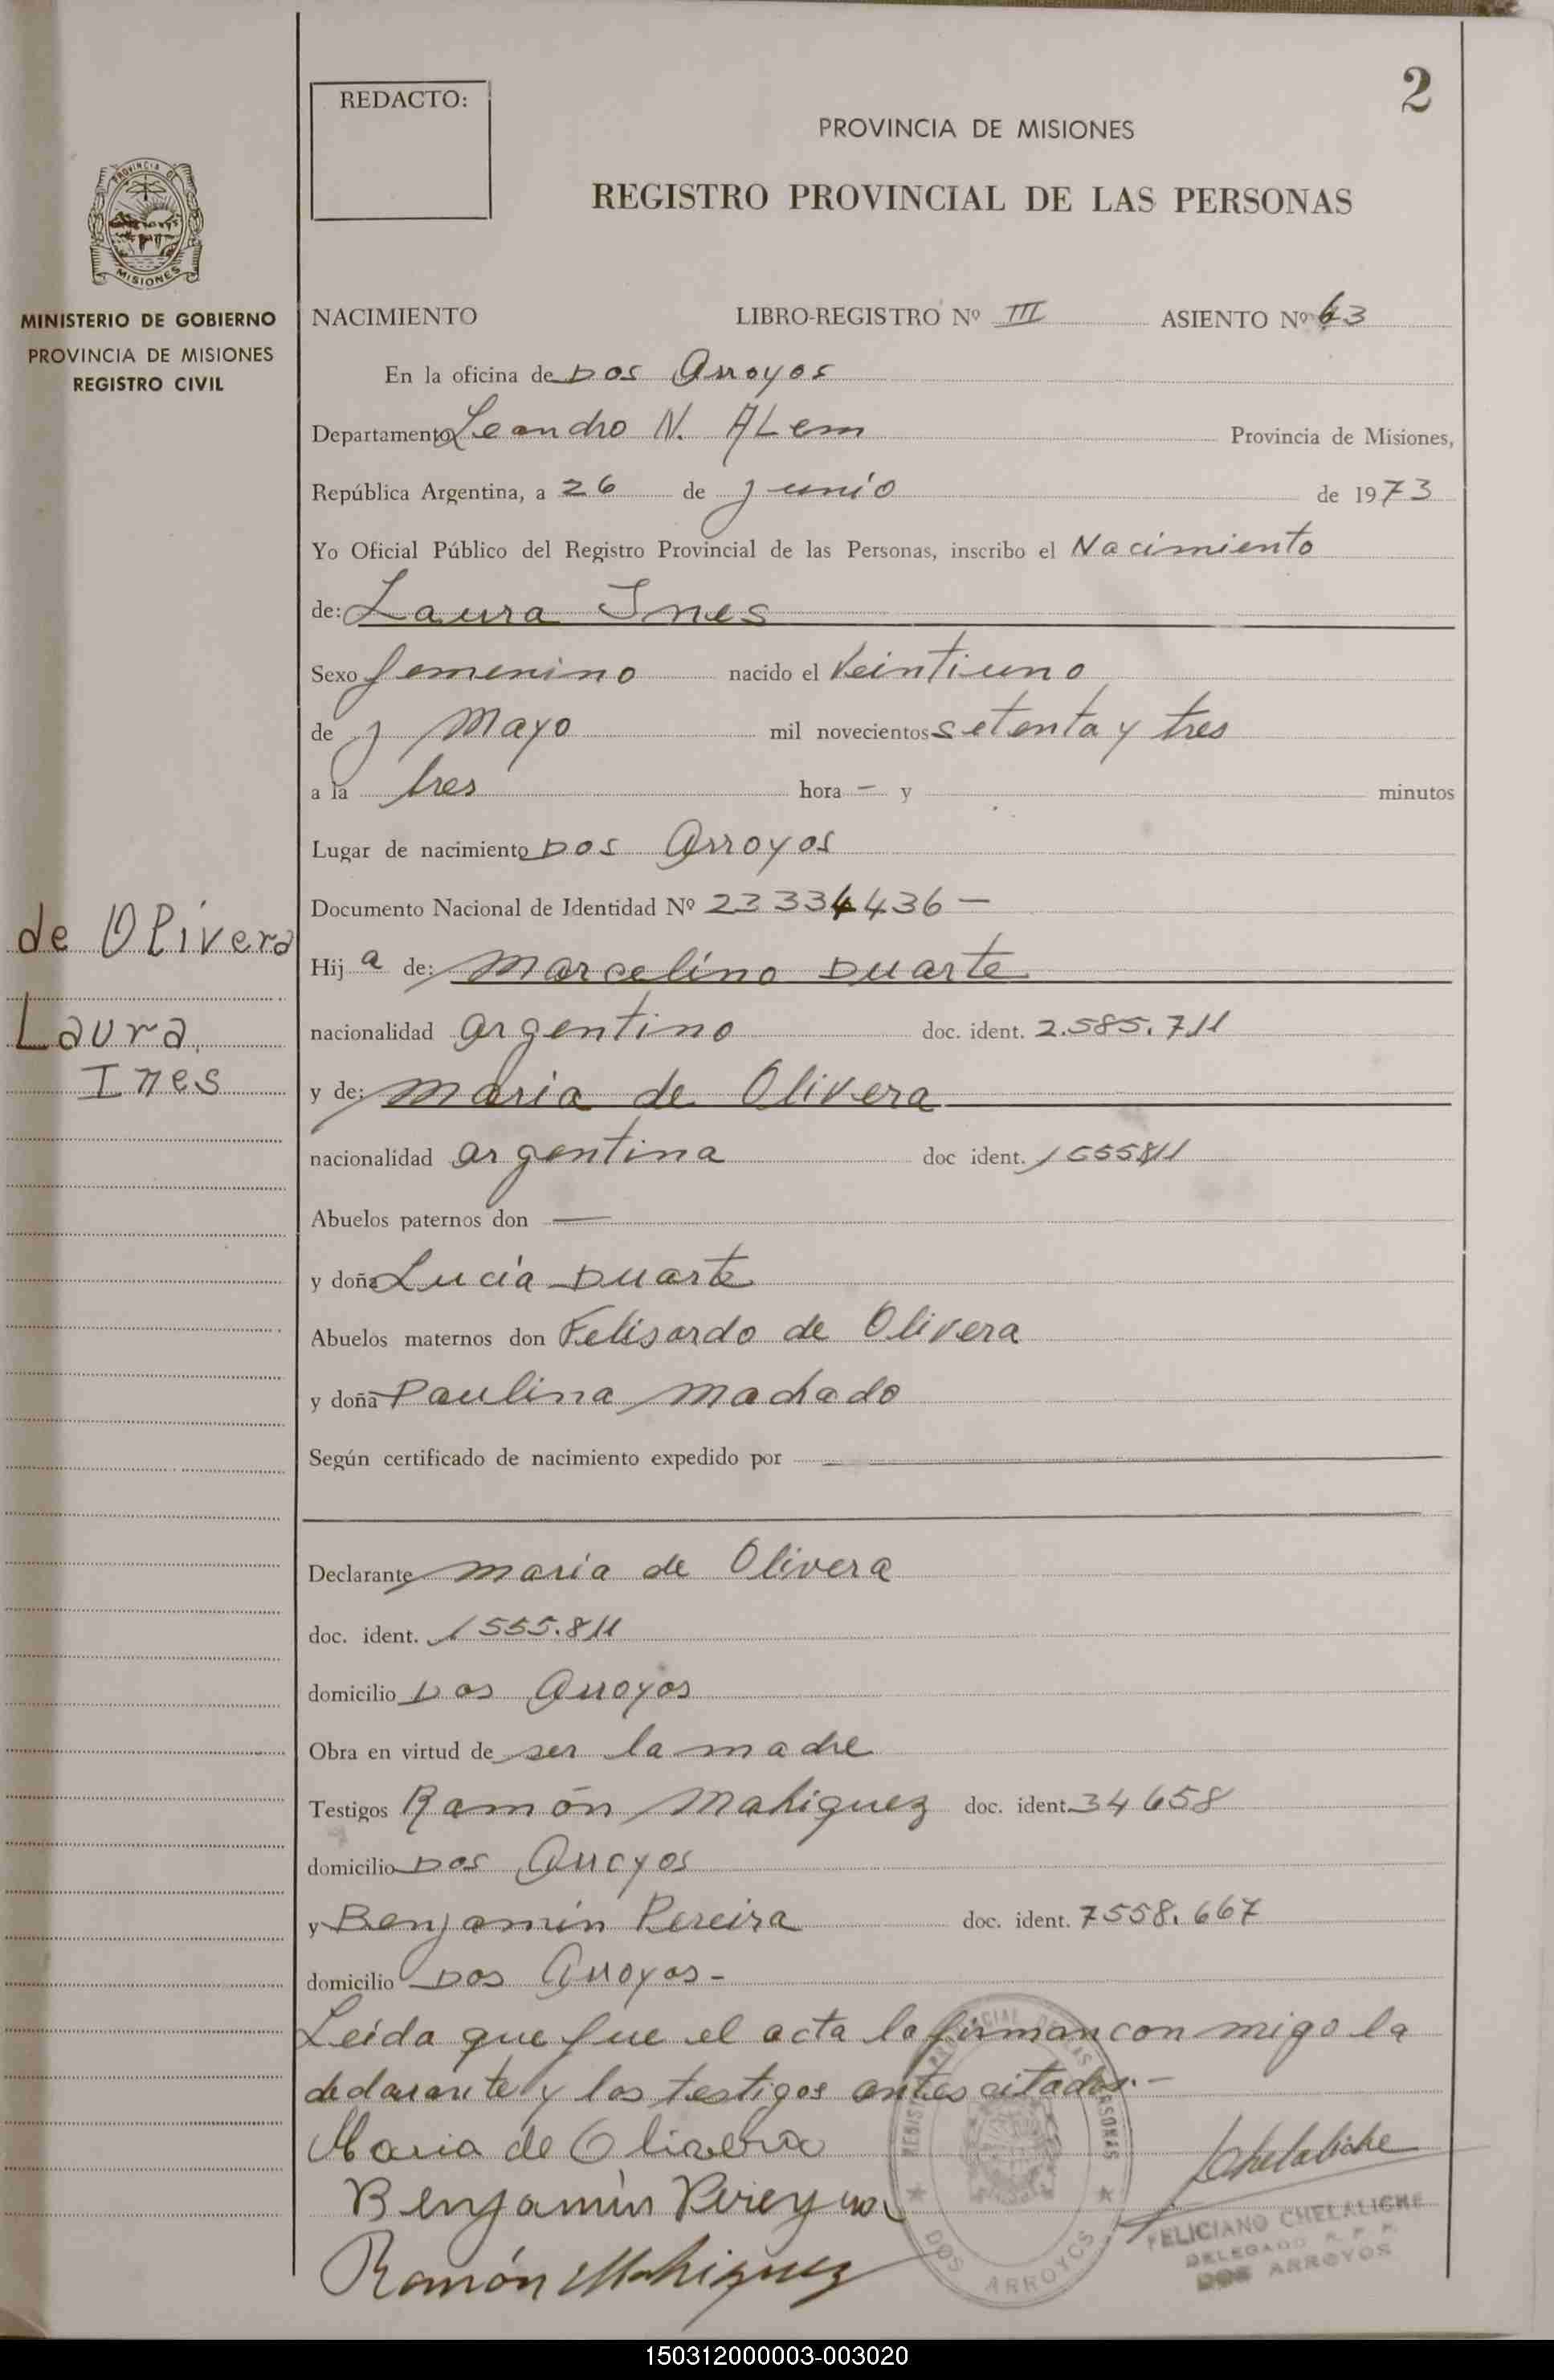 2
REDACTO:
PROVINCIA DE MISIONES
REGISTRO PROVINCIAL DE LAS PERSONAS
PROVINCIA DE
MISIONES
MINISTERIO DE GOBIERNO
PROVINCIA DE MISIONES
REGISTRO CIVIL
NACIMIENTO LIBRO-REGISTRO Nº III ASIENTO Nº 63
En la oficina de Dos Arroyos
Departamento Leandro N. ALem Provincia de Misiones,
República Argentina, a 26 de junio de 1973
Yo Oficial Público del Registro Provincial de las Personas, inscribo el Nacimiento
de: Laura Ines
Sexo femenino nacido el Veintiuno
de Mayo mil novecientos setenta y tres
a la tres hora — y minutos
Lugar de nacimiento Dos Arroyos
Documento Nacional de Identidad Nº 23334436 —
de Olivera
Laura
Ines
Hij a de: Marcelino Duarte
nacionalidad argentino doc. ident. 2.585.711
y de: Maria de Olivera
nacionalidad argentina doc ident. 1555811
Abuelos paternos don —
y doña Lucía Duarte
Abuelos maternos don Felisardo de Olivera
y doña Paulina Machado
Según certificado de nacimiento expedido por
Declarante María de Olivera
doc. ident. 1555.811
domicilio Dos Arroyos
Obra en virtud de ser la madre
Testigos Ramón Mahiquez doc. ident. 34658
domicilio Dos Arroyos
y Benjamín Pereira doc. ident. 7558.667
domicilio Dos Arroyos -
Leída que fue el acta la firman con migo la
declarante y los testigos antes citados.-
Maria de Olivera
Benjamín Pereyra
Ramón Mahiquez
Chelaliche
FELICIANO CHELALICHE
DELEGADO R. P. P.
DOS ARROYOS
DOS ARROYOS
150312000003-003020